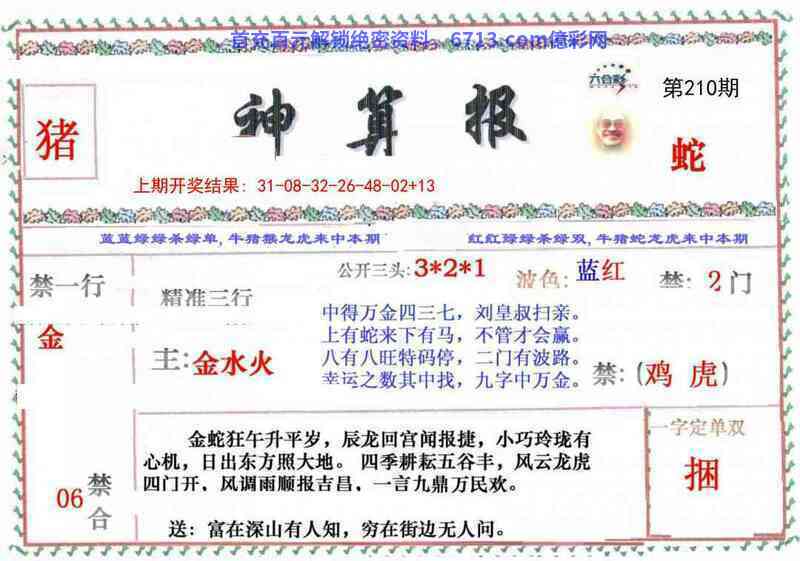 首充百元解锁绝密资料、6713.com億彩网
六合彩
第210期
猪
神算报
蛇
上期开奖结果：31-08-32-26-48-02+13
蓝蓝绿绿杀绿单,牛猪猴龙虎来中本期
红红绿绿杀绿双,牛猪蛇龙虎来中本期
禁一行
金
精准三行
主:金水火
公开三头:3*2*1
波色:蓝红
禁:2门
中得万金四三七，刘皇叔扫亲。
上有蛇来下有马，不管才会赢。
八有八旺特码停，二门有波路。
幸运之数其中找，九字中万金。
禁:(鸡 虎)
06
禁合
金蛇狂午升平岁，辰龙回宫闻报捷，小巧玲珑有
心机，日出东方照大地。 四季耕耘五谷丰，风云龙虎
四门开，风调雨顺报吉昌，一言九鼎万民欢。
送：富在深山有人知，穷在街边无人问。
一字定单双
捆